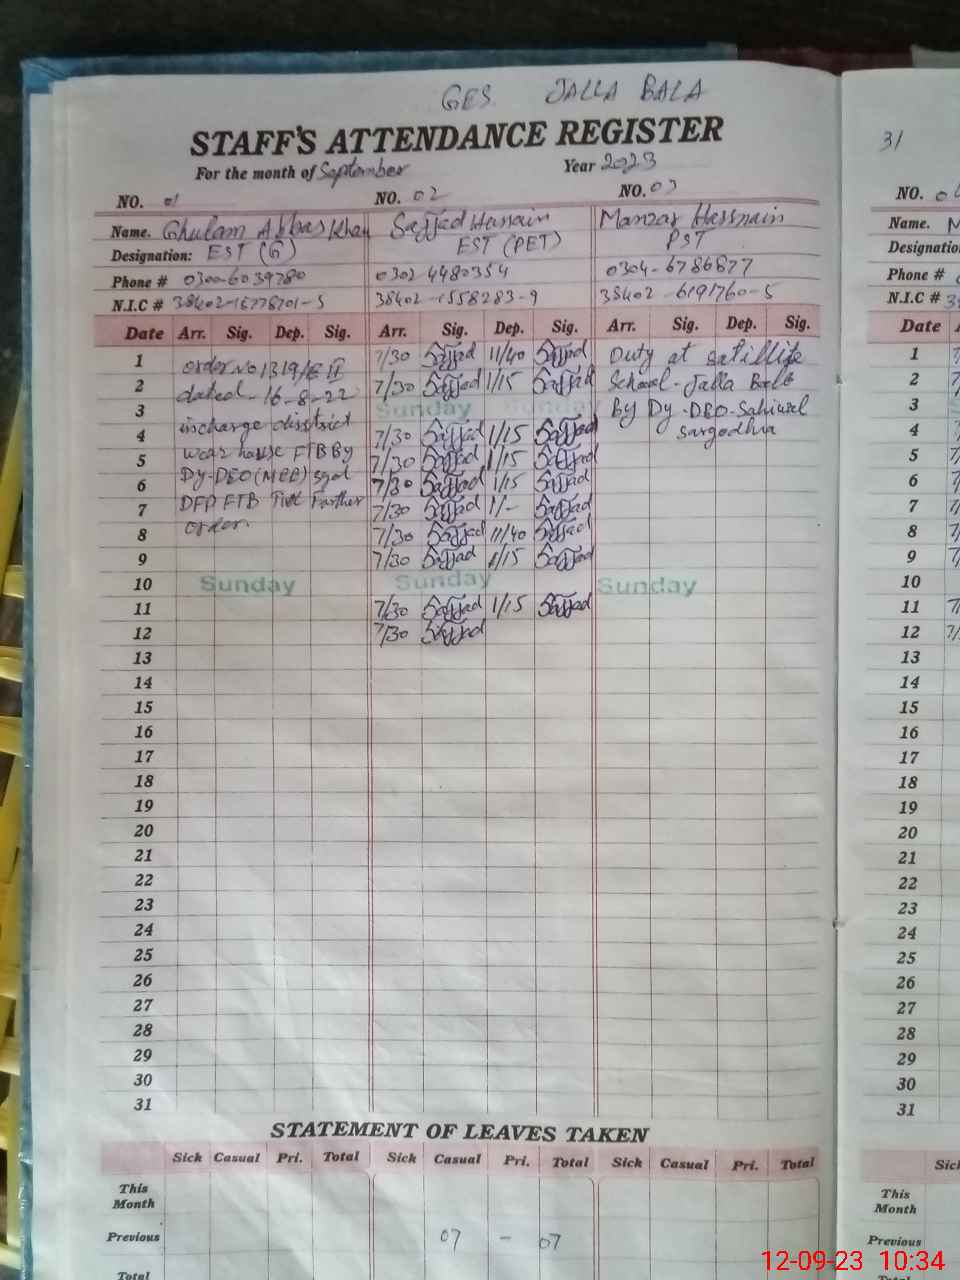 GES JALLA BALA
STAFF'S ATTENDANCE REGISTER
31
For the month of September Year 2023
NO. 01 NO. 02 NO. 03 NO.
Name. Ghulam Abbas Khan Sajjad Hussain Manzar Hassnain Name. M
Designation: EST (G) EST (PET) PST Designation
Phone # 0300-6039780 0302 4480354 0304-6786877 Phone #
N.I.C # 38402-1558283-9 38402-6191760-5 N.I.C # 3
Date Arr. Sig. Dep. Sig. Arr. Sig. Dep. Sig. Arr. Sig. Dep. Sig. Date A
1 order No 1319/E II 7/30 Sajjad 11/40 Sajjad Duty at satillite 1 7/
2 dated 16-8-22 7/30 Sajjad 1/15 Sajjad School-Jalla Bala 2 7/
3 incharge disstrict Sunday Sunday By Dy-DEO-Sahiwal 3
4 wear house FTB By 7/30 Sajjad 1/15 Sajjad Sargodha 4 7/
5 Dy-DEO(MEE) sgd 7/30 Sajjad 1/15 Sajjad 5 7/
6 DFP FTB Till Farther 7/30 Sajjad 1/15 Sajjad 6 7/
7 order. 7/30 Sajjad 1/- Sajjad 7 7/
8 7/30 Sajjad 11/40 Sajjad 8 7/
9 7/30 Sajjad 1/15 Sajjad 9 7/
10 Sunday Sunday Sunday 10
11 7/30 Sajjad 1/15 Sajjad 11 7/
12 7/30 Sajjad 12 7/
13 13
14 14
15 15
16 16
17 17
18 18
19 19
20 20
21 21
22 22
23 23
24 24
25 25
26 26
27 27
28 28
29 29
30 30
31 31
STATEMENT OF LEAVES TAKEN
Sick Casual Pri. Total Sick Casual Pri. Total Sick Casual Pri. Total Sic
This Month This Month
Previous 07 - 07 Previous
Total
12-09-23 10:34